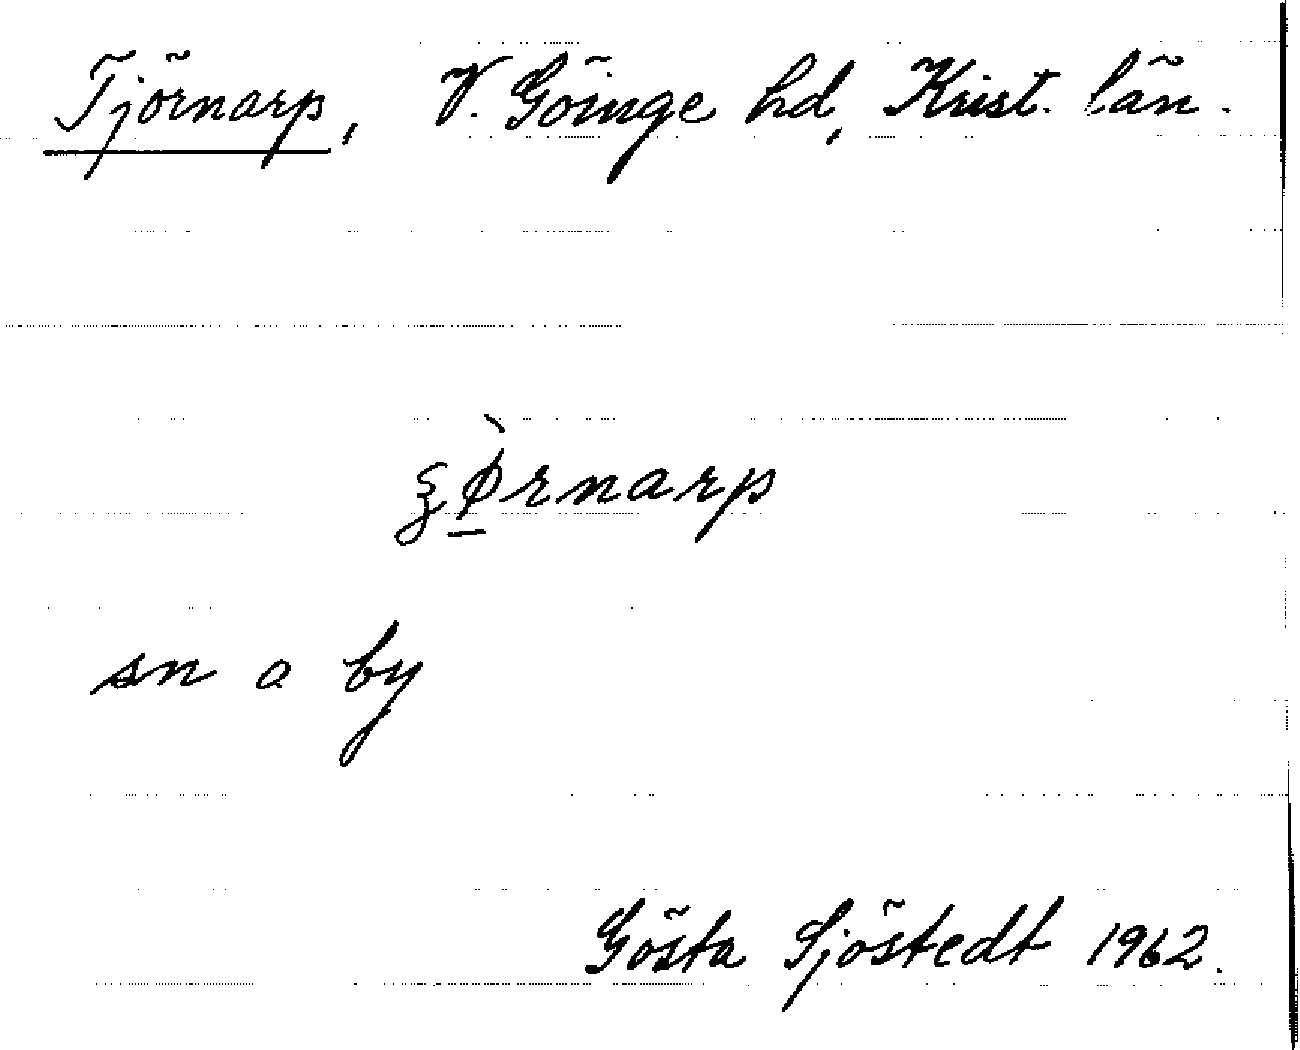 Tjörnarp, V. Göinge hd, Krist. län.
ʒø̠̀rnarp
sn o by
Gösta Sjöstedt 1962.